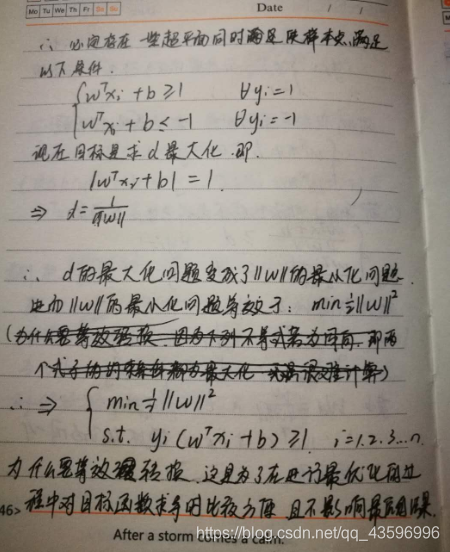 Mo Tu We Th Fr Sa Su
Date / /
∴ 必定存在一些超平面同时满足 样本点,满足
以下条件.
wᵀxᵢ + b ≥ 1 ∀yᵢ = 1
wᵀxᵢ + b ≤ -1 ∀yᵢ = -1
现在目标是求d最大化.即.
|wᵀxᵢ + b| = 1.
⇒ d = 1/||w||
∴ d的最大化问题变成了||w||的最小化问题.
进而||w||的最小化问题等效于: min ½||w||²
(为什么要等效转换. 因为 不等式 即两
个式子 最大化 很难计算)
∴ ⇒ { min ½||w||²
s.t. yᵢ(wᵀxᵢ + b) ≥ 1. i = 1.2.3...n.
为什么要等效转换.这是为了在进行最优化的过
程中对目标函数求导时比较方便 且不影响最后的结果.
46>
After a storm comes a calm.
https://blog.csdn.net/qq_43596996